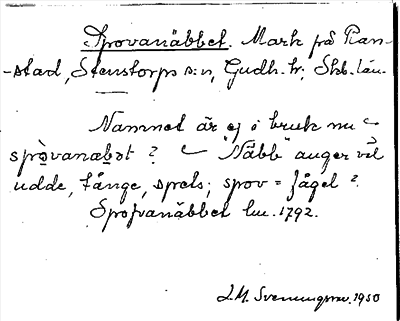 Spovanäbbet. Mark på Ran-
-stad, Stenstorps s:n, Gudh. hr; Skb. län.
Namnet är ej i bruk nu
spòvanabət ? "Näbb" auger väl
udde, tånge, spets; spov = fågel ?
Spofvanäbbet lm. 1792.
J. M. 1950